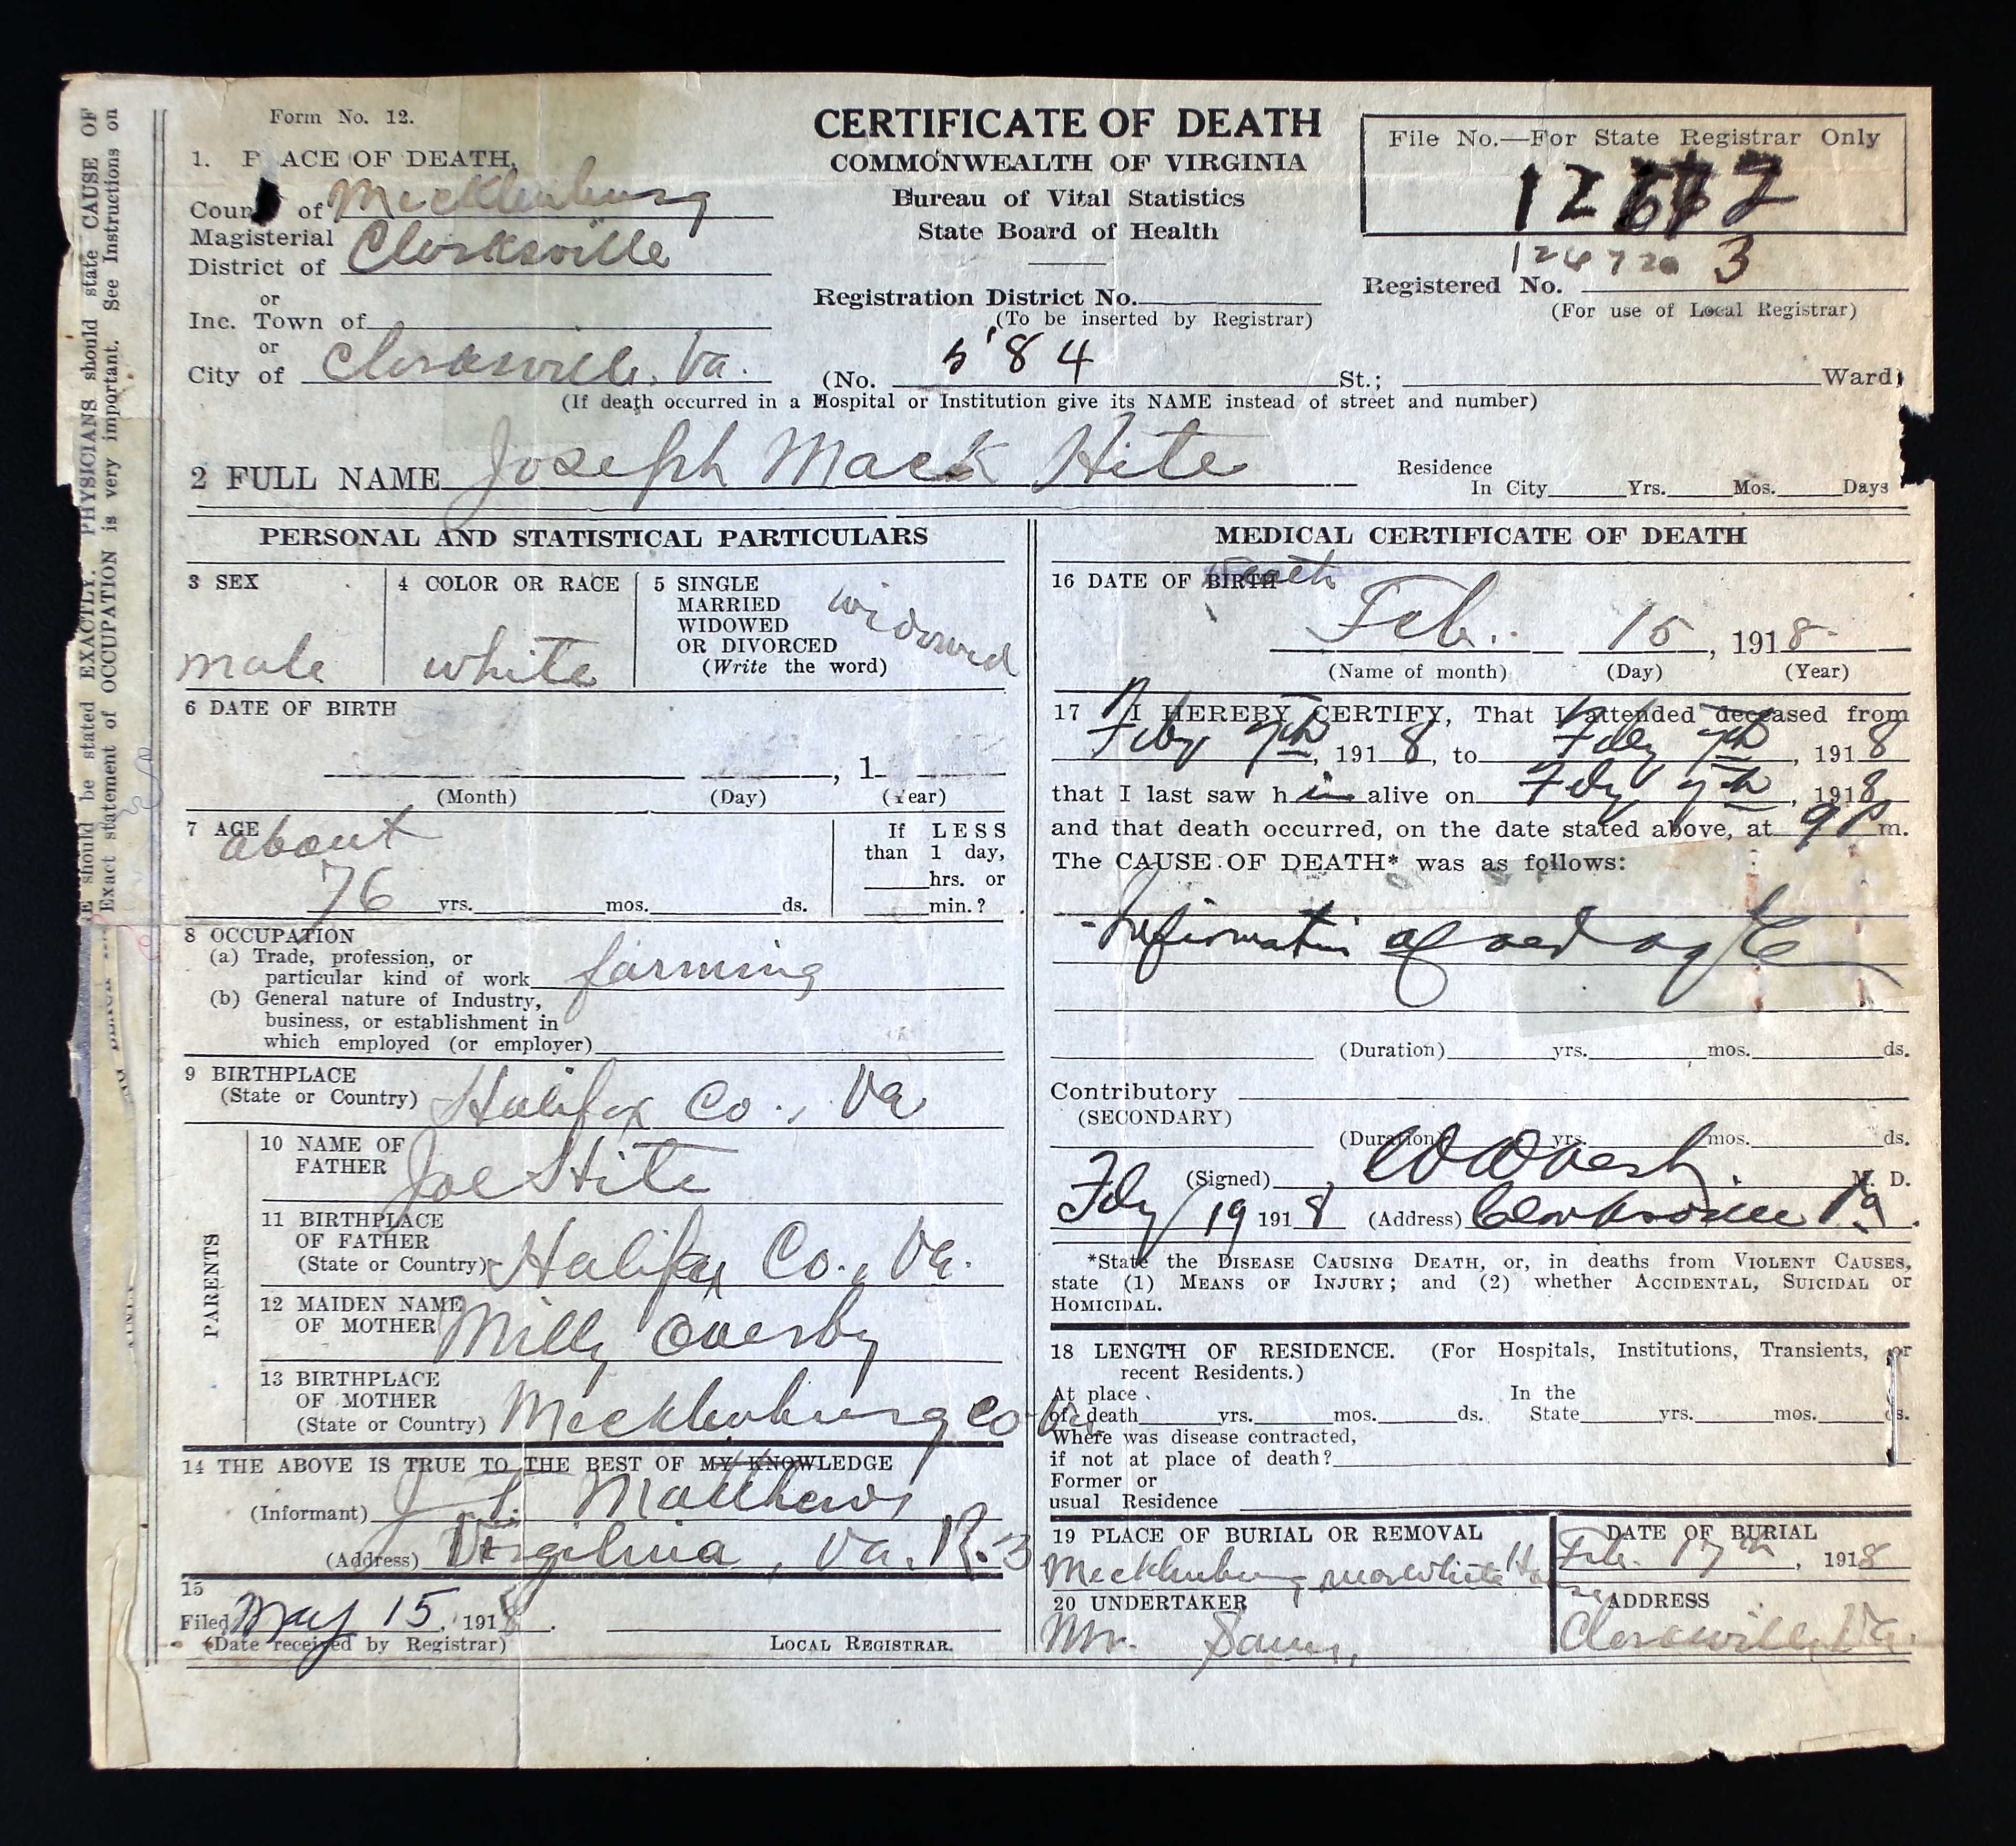 Form No. 12.
CERTIFICATE OF DEATH
COMMONWEALTH OF VIRGINIA
Bureau of Vital Statistics
State Board of Health
File No.—For State Registrar Only
3
Registered No.
(For use of Local Registrar)
1. P ACE OF DEATH,
Coun of Mecklenburg
Magisterial
District of Clarksville
or
Inc. Town of
or
City of Clarksville, Va.
Registration District No.
(To be inserted by Registrar)
(No. 584 St.; Ward)
(If death occurred in a Hospital or Institution give its NAME instead of street and number)
2 FULL NAME Joseph Mack Hite
Residence
In City Yrs. Mos. Days
PERSONAL AND STATISTICAL PARTICULARS
3 SEX
male
4 COLOR OR RACE
white
5 SINGLE
MARRIED
WIDOWED
OR DIVORCED
(Write the word)
widowed
6 DATE OF BIRTH
, 1
(Month) (Day) (Year)
7 AGE
about
76 yrs. mos. ds.
If LESS
than 1 day,
hrs. or
min.?
8 OCCUPATION
(a) Trade, profession, or
particular kind of work farming
(b) General nature of Industry,
business, or establishment in
which employed (or employer)
9 BIRTHPLACE
(State or Country) Halifax Co., Va
PARENTS
10 NAME OF
FATHER Joe Hite
11 BIRTHPLACE
OF FATHER
(State or Country) Halifax Co., Va.
12 MAIDEN NAME
OF MOTHER Milly Overby
13 BIRTHPLACE
OF MOTHER
(State or Country) Mecklenburg Co Va
14 THE ABOVE IS TRUE TO THE BEST OF MY KNOWLEDGE
(Informant) J. T. Matthews
(Address) Virgilina, Va. R. 3
15
Filed May 15, 1918.
(Date received by Registrar)
LOCAL REGISTRAR.
MEDICAL CERTIFICATE OF DEATH
16 DATE OF BIRTH death
Feb. 15, 1918
(Name of month) (Day) (Year)
17 I HEREBY CERTIFY, That I attended deceased from
Feby 7th, 1918, to Feby 7th, 1918
that I last saw him alive on Feby 7th, 1918
and that death occurred, on the date stated above, at 9 P m.
The CAUSE OF DEATH* was as follows:
of old age
(Duration) yrs. mos. ds.
Contributory
(SECONDARY)
(Duration) yrs. mos. ds.
(Signed) M. D.
Feby 19 1918 (Address) Clarksville Va.
*State the DISEASE CAUSING DEATH, or, in deaths from VIOLENT CAUSES,
state (1) MEANS OF INJURY; and (2) whether ACCIDENTAL, SUICIDAL or
HOMICIDAL.
18 LENGTH OF RESIDENCE. (For Hospitals, Institutions, Transients, or
recent Residents.)
At place
of death yrs. mos. ds.
In the
State yrs. mos. ds.
Where was disease contracted,
if not at place of death?
Former or
usual Residence
19 PLACE OF BURIAL OR REMOVAL
Mecklenburg near White
DATE OF BURIAL
Feb. 17th, 1918
20 UNDERTAKER
Mr.
ADDRESS
Clarksville, Va.
E should be stated EXACTLY. PHYSICIANS should state CAUSE OF
Exact statement of OCCUPATION is very important. See Instructions on